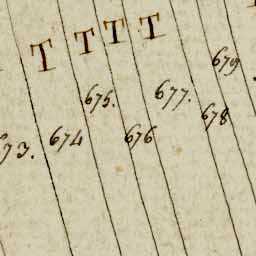 T T T T
673. 674 675. 676 677. 678 679